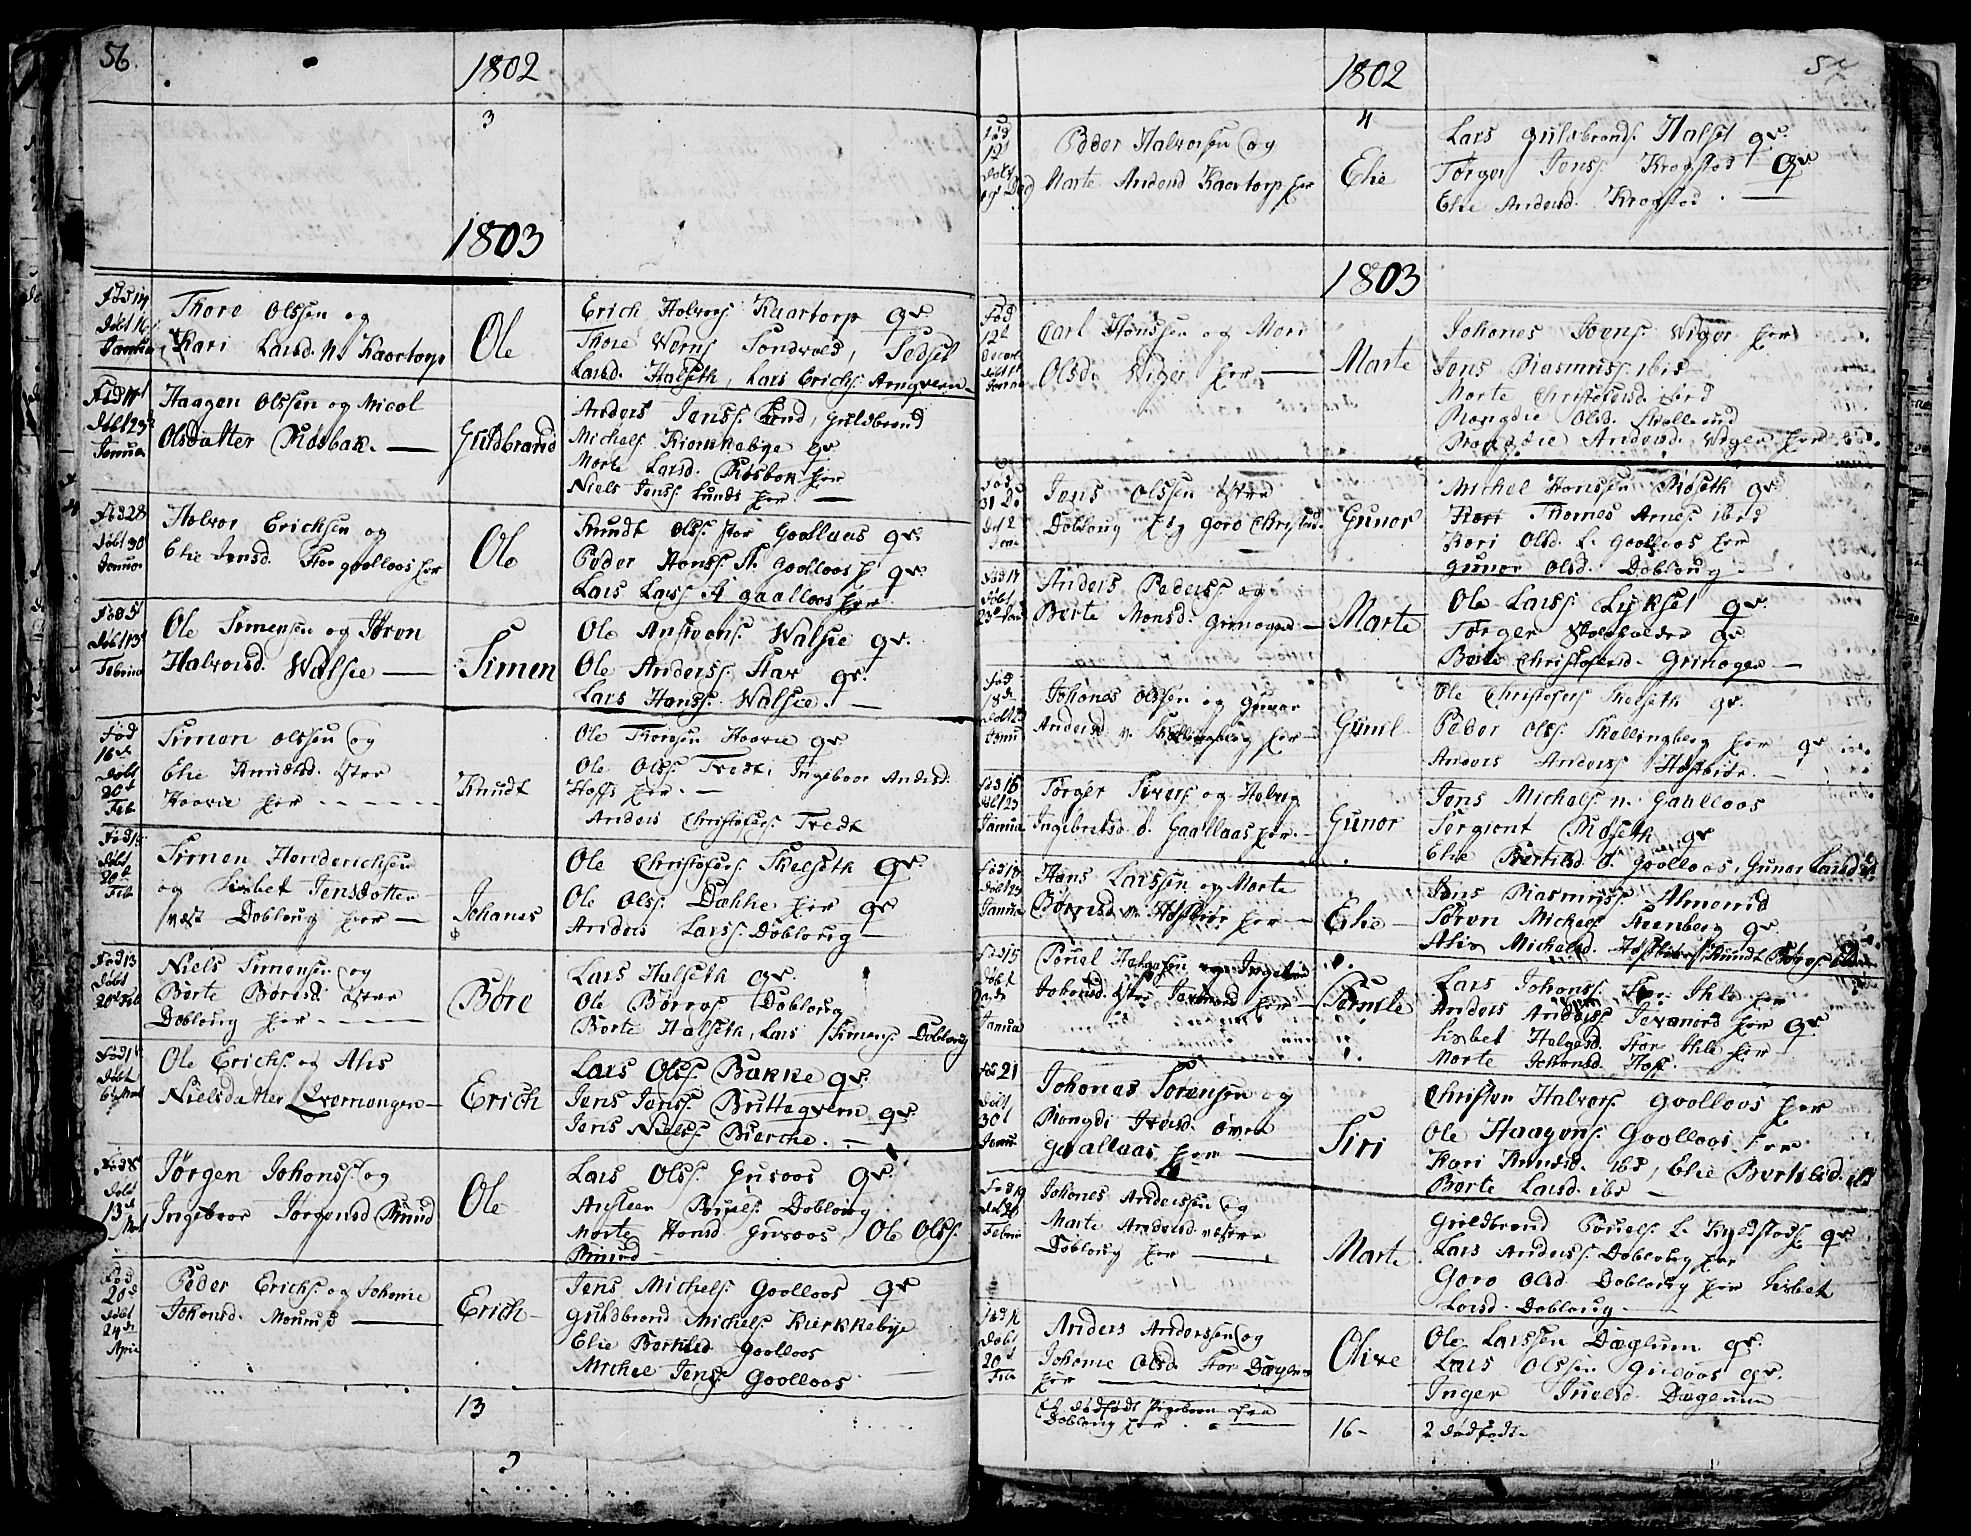 56
1802
3
1803
Fød 14
Døbt 16
Januar
Thore Olssen og
Kari Larsd. Kaartorp
Ole
Erich Halvors Kaartorp gr.
Thore Werns Sondvold, Sedsel
Larsd. Halseth, Lars Erichs. Arnqvern
Døbt 23
Janua
Haagen Olssen og Nicol
Olsdatter Røsbak.
Guldbrand
Anders Jenss. Lund, Guldbrand
Michels Kierkebye gr
Morte Larsd. Røsbak her
Niels Jenss. Lunds her
Fød 28
Døbt 30
Januar
Halvor Erichsen og
Elie Jensd. Stor gaallaas her
Ole
Knudt Olss. Stor Gaallaas gr.
Peder Hanss. St. Gaallaas gr.
Lars Larss. St gaallaas her
Fød 5
Døbt 13
Februa
Ole Simensen og Jøren
Halvorsd. Walsie
Simen
Ole Anstvens. Walsie gr.
Ole Anderss. Stav gr.
Lars Hanss. Walsie.
Fød
16
Døbt
20
Feb
Simen Olssen og
Elie Knudtsd. Øster
Haavie her
Knudt
Ole Thorsen Haavie gr
Ole Olss. Tredt, Ingeboer Andersd.
Hoffs her.
Anders Christophers. Tredt
Døbt
20
Feb
Simen Henderichsen
og Lisbet Jensdatter
vest Dobloug her
Johanes
Ole Christofers. Skelseth gr.
Ole Olss. Dæhlie her gr
Anders Larss. Dobloug
Fød 13
Døbt
20 Feb
Niels Simensen og
Børte Børesd. Øster
Dobloug her
Børe
Lars Halseth gr.
Ole Børres. Dobloug
Børte Halseth, Lars Simens. Doblouug
Fød 1
Døbt
6
Ole Erichs. og Alis
Nielsdatter Qvarnengen
Erich
Lars Olss. Bakke gr.
Jens Jenss. Bruttegvern gr.
Jens Nielss. Bierche.
Fød 8
Døbt
13
Jørgen Johanss. og
Ingeboer Jørgensd Ruud
Ole
Lars Olss. Gusaas gr.
Ansteen Pouels. Doblouug
Morte Hansd. Gusaas, Ole Olss.
Ruud
Fød
20
Døbt
24
April
Peder Erichs. og Johanne
Johansd. Mørud
Erich
Jens Michels. Gaallaas gr
Guldbrand Michels. Kierkkebye
Elie Bertelsd Gaallaas
Michel Jens. Gaallaas
13
57
1802
4
Fød
12
Døbt
Peder Halvorsen og
Marte Andersd Kaartorp her
Elie
Lars Guldbrands. Halset gr.
Jørgen Jenss. Krogstad gr
Elie Andersd. Krogstad.
1803
Fød
12
Decem
Døbt 1
Janua
Carl Hanssen og Mari
Olsd. Wiger her
Marte
Johanes Joens. Wiger her
Jens Rasmuss. ibid
Morte Christofersd. ibid
Rangdie Olsd. Skallerud
Rangdie Andersd. Wiger her
Fød
31 De
Døbt 2
Jan
Jens Olssen Østre
Doblouug og Goro Christensd.
Gunor
Michel Hanssen Røseth gr
Kari Thomes Arnes. ibid
Kari Olsd. L. Gaallaas her
Gunor Olsd. Doblouug
Fød 17
Døbt
23 Janu
Anders Pederss og
Berte Monsd. Grinager
Marte
Ole Larss. Lykset gr.
Jørgen Skoleholder gr
Børte Christofersd. Grinager
Fød
18
Døbt 23
Janu
Johanes Olssen og Gunor
Andersd. Skellingberg her
Gunil
Ole Christofers Skelseth gr.
Peder Olss. Skellingberg her gr
Anders Anderss. Høstbiør.
Fød 16
Døbt 23
Janua
Jørgen Siverss. og Helvig
Ingebretsd. ø. Gaallaas her.
Gunor
Jens Michels. n. Gaallaas
Sergiant Røseth gr
Elie Bertelsd. ø Gaallaas, Gunor Larsd.
Fød 18
Døbt 23
Janua
Hans Larssen og Morte
Børresd. Høstbiør her
Elie
Jens Rasmuss. Almerud
Søren Michels. Stenberg gr
Alis Michelsd. Høstbiør, Knudt Børes.
Fød 15
Døbt
Janua
Pouel Helgesen og Ingeboer
Johansd. Østre Jevanord her
Pernele
Lars Johanss. Stor Ihle her
Anders Anderss. Jevanord her gr
Lisbet Helgesd. Stor Ihle her
Morte Johansd. Hoff.
Fød 21
Døbt
30
Janu
Johanes Sørensen og
Rangdi Iversd. Øvre
gaallaas her
Siri
Christen Halvors. Gaallaas her
Ole Haagens. Gaallaas her
Kari Knudsd. ibd, Elie Bertelsd. ibd
Børte Larsd. ibd
Fød 19
Døbt 20
Februa
Johanes Anderssen og
Marte Andersd. vestre
Doblouug her
Marte
Guldbrand Pouels. L. Kyldstads gr
Lars Anderss. Doblouug her
Goro Olsd. Doblouug her Lisbet
Larsd. Doblouug
Fød 16
Døbt
20
Feb
Anders Anderssen og
Johanne Olsd. Stor Dæglum
her
Olive
Ole Larssen Dæglum gr.
Lars Olssen Gusaas gr.
Inger Juelsd. Dæglum
Et dødfødt Pigebarn fra
Doblouug her
16
2 dødfødte